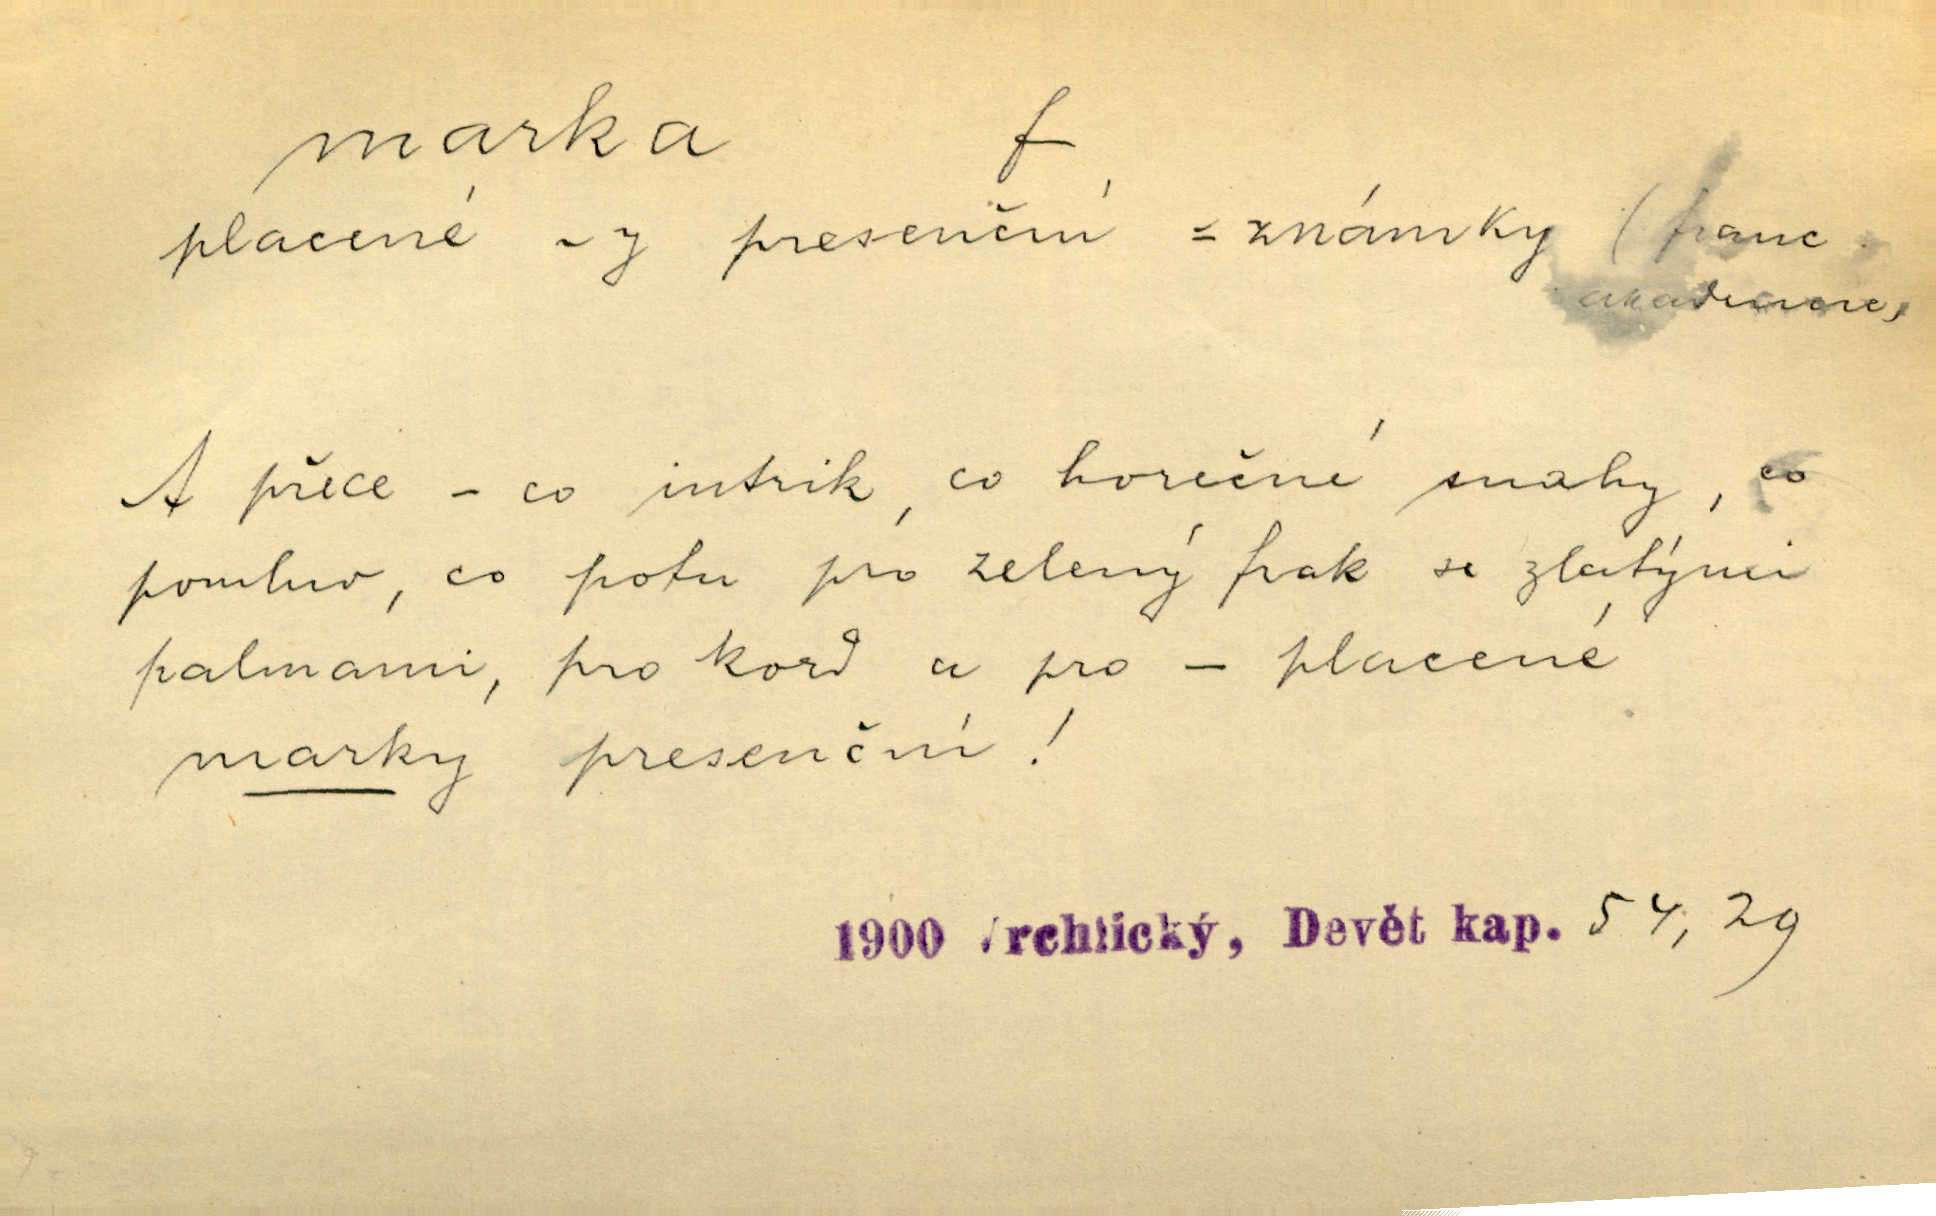 marka f
placené ~y presenční = známky (franc.
akademie)
A přece – co intrik, co horečné snahy, co
pomluv, co potu pro zelený frak se zlatými
palmami, pro kord a pro – placené
marky presenční!
1900 Vrchlický, Devět kap. 54, 29